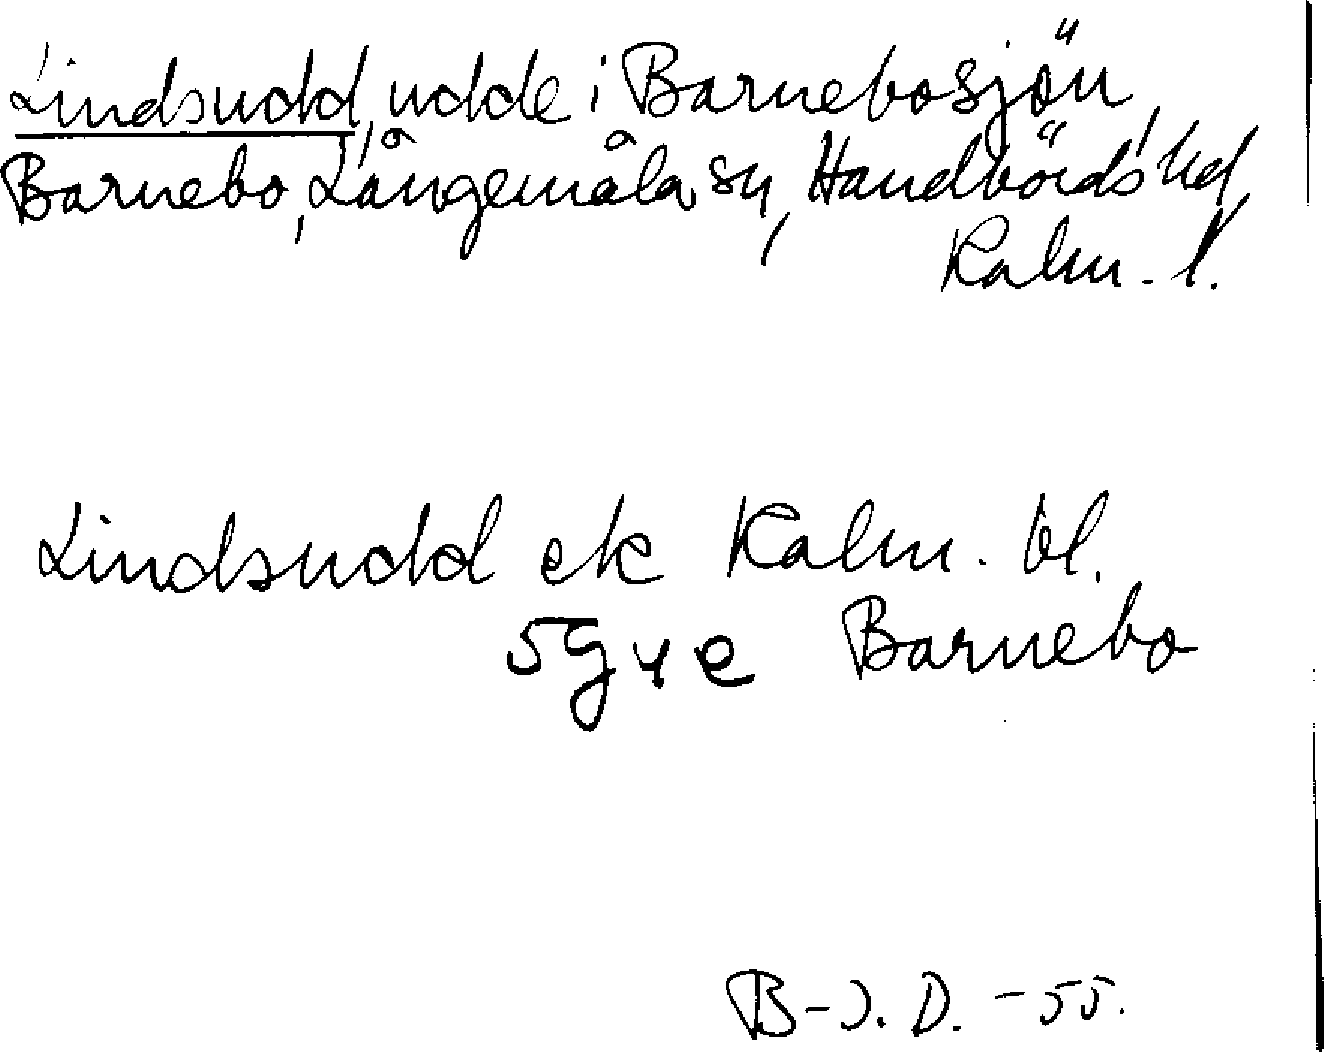 Lindsudd, udde i Barnebosjön,
Barnebo, Långemåla sn, Handbörds hd,
Kalm. l.
Lindsudd ek Kalm. bl.
5G4e Barnebo
B-J. D. -55.